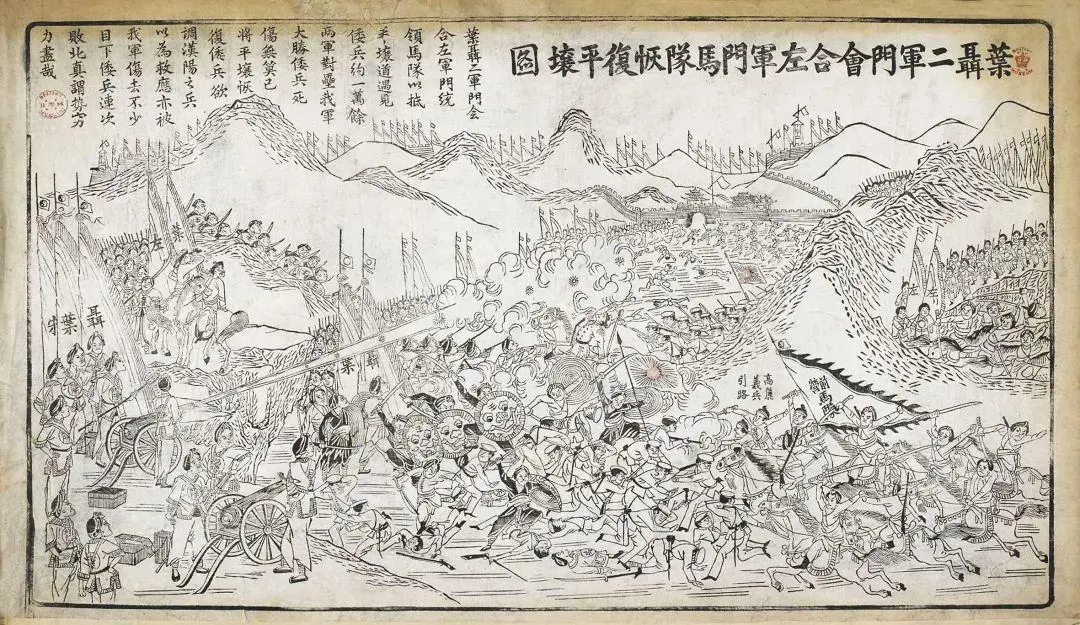 葉聶二軍門會合左軍門馬隊恢復平壤圖
葉聶二軍門会
合左軍門統
領馬隊以抵
平壤道遇見
倭兵約一萬餘
兩軍對壘我軍
大勝倭兵死
傷無算已
將平壤恢
復倭兵欲
調漢陽之兵
以為救應亦被
我軍傷去不少
目下倭兵連次
敗北真謂勢窮
力盡哉
左
葉
左
聶
葉
聶
葉
高麗
義兵
引路
BRITISH
MUSEUM